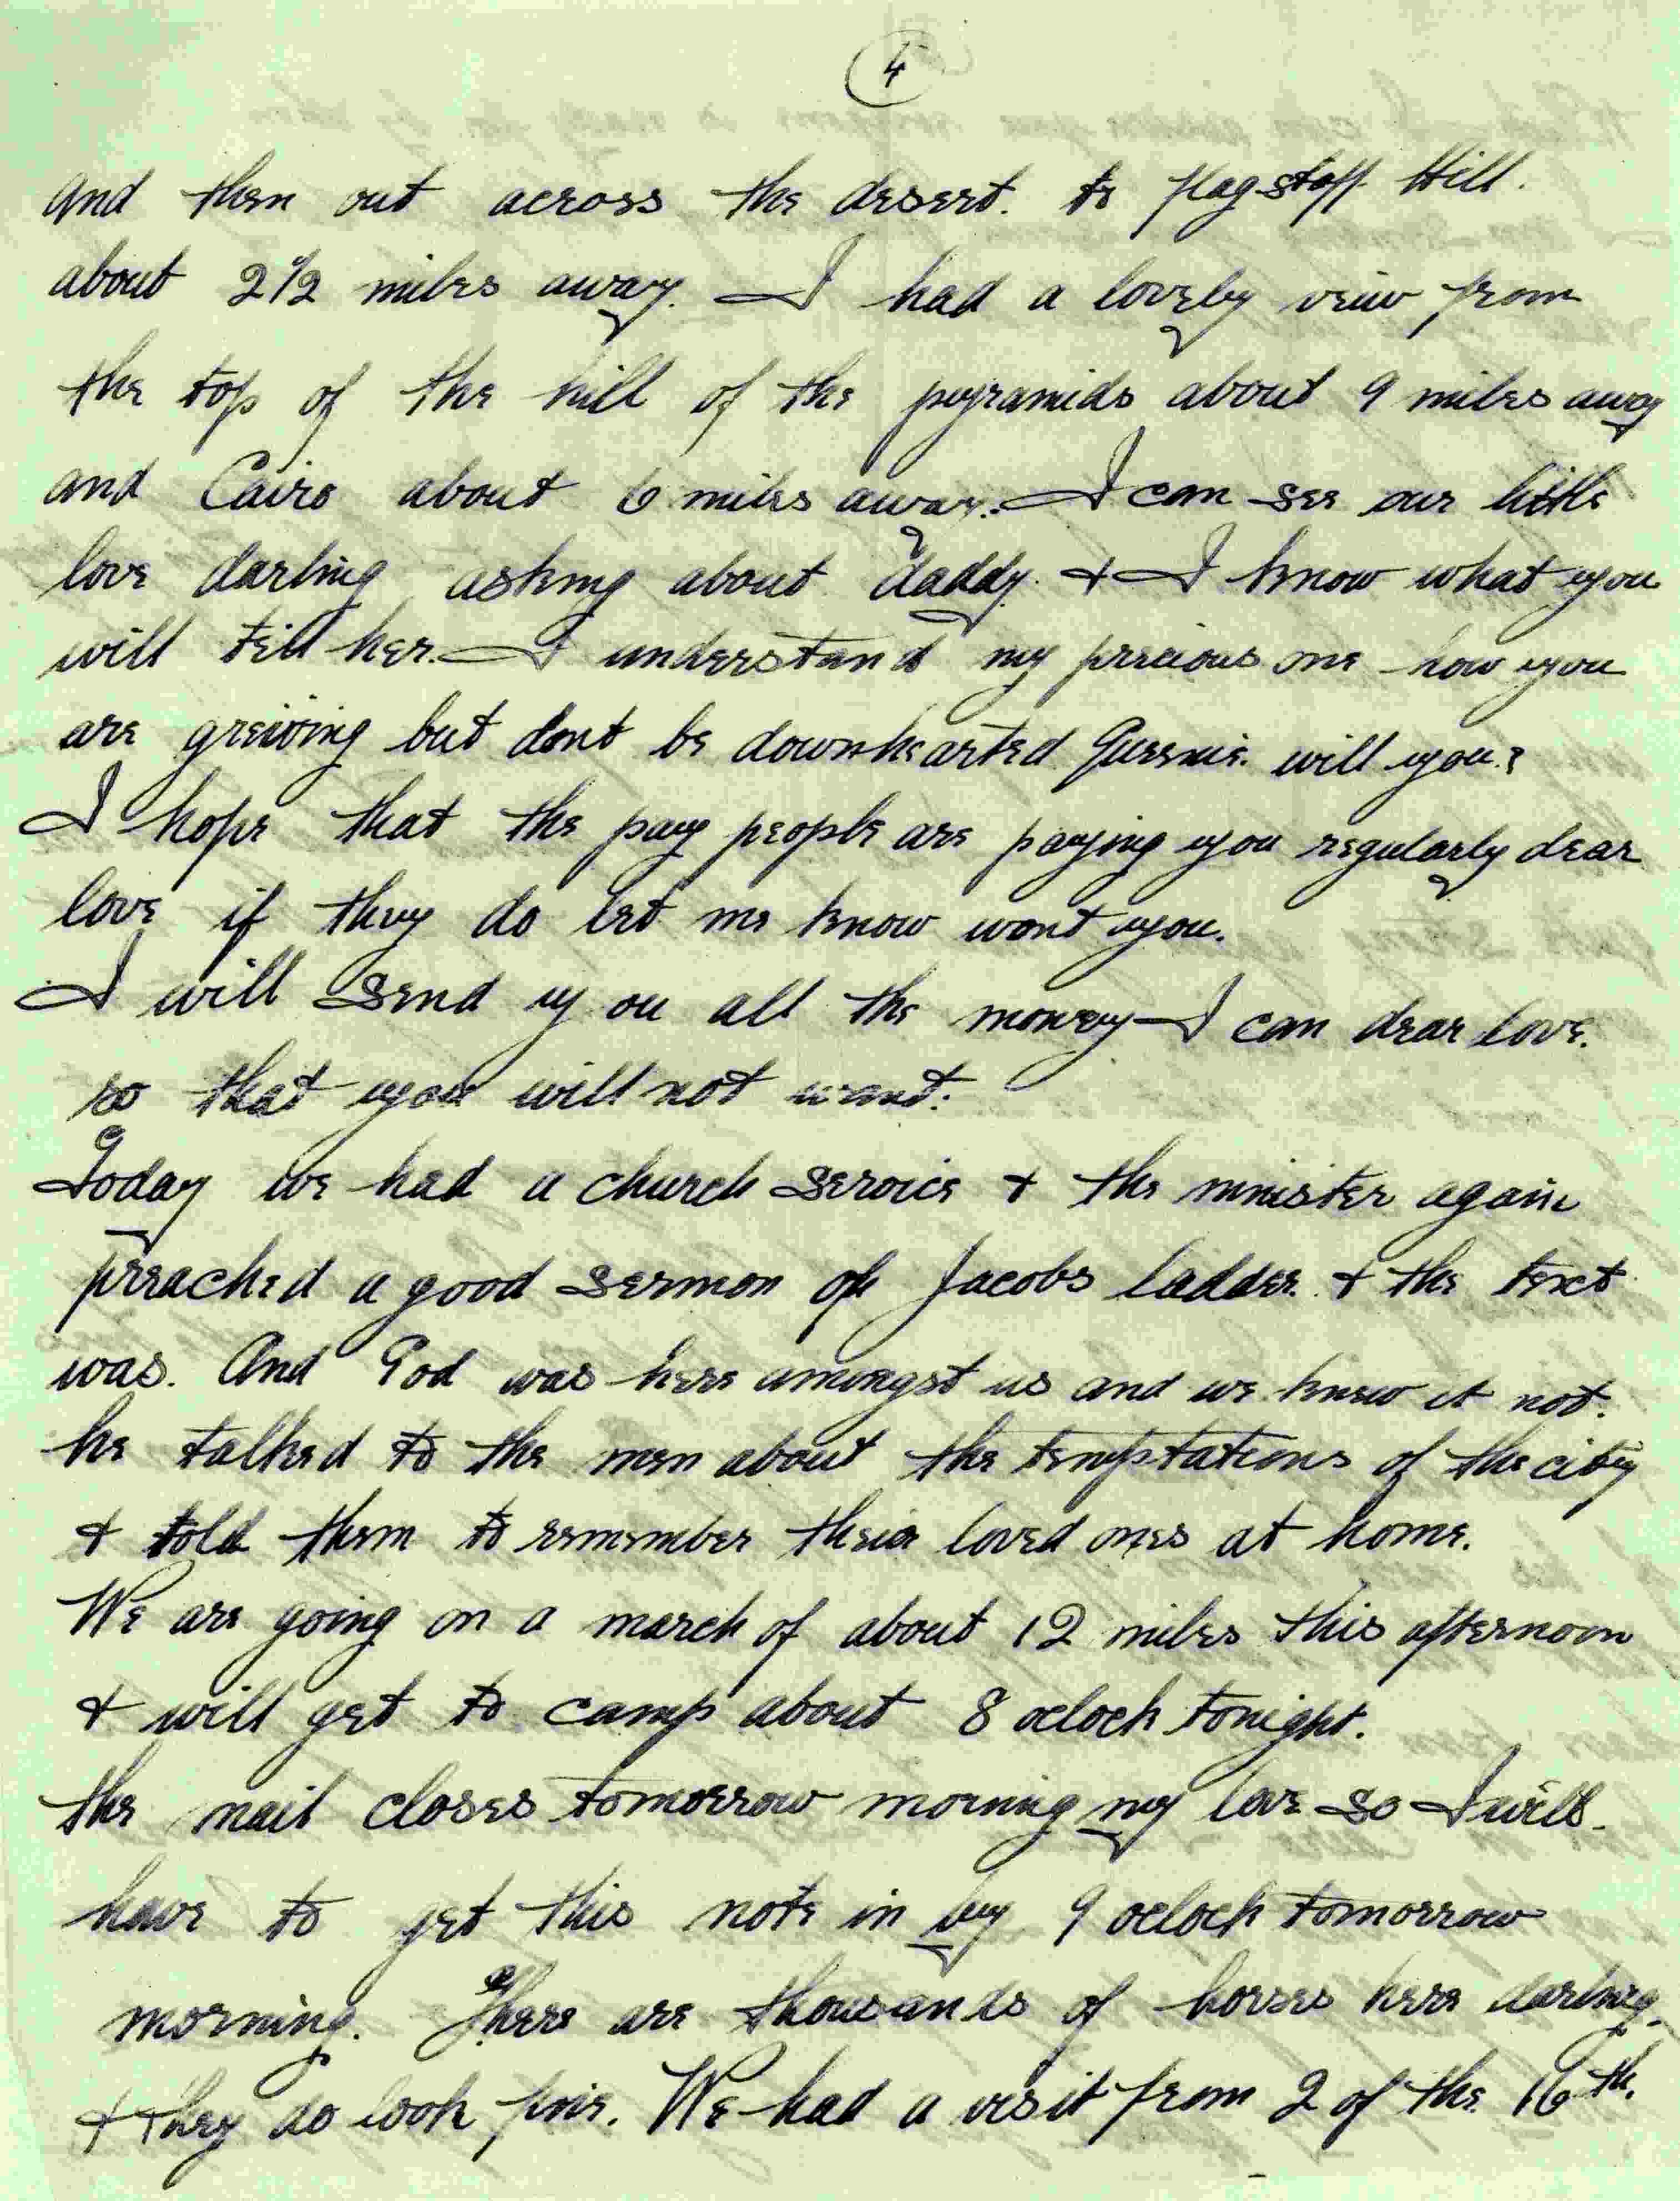 4
and then out across the desert. to flagstaff Hill.
about 2 1/2 miles away. I had a lovely veiw from
the top of the hill of the pyramids about 9 miles away
and Cairo about 6 miles away. I can see our little
love darling asking about daddy. & I know what you
will tell her. I understand my precious one how you
are greiving but dont be downhearted Queenie. will you?
I hope that the pay people are paying you regularly dear
love if they do let me know wont you.
I will send you all the money I can dear love.
so that you will not want.
Today we had a church service & the minister again
preached a good sermon of Jacobs ladder. & the text
was. And God was here amongst us and we knew it not.
he talked to the men about the temptations of the city
& told them to remember their loved ones at home.
We are going on a march of about 12 miles this afternoon
& will get to camp about 8 oclock tonight.
the mail closes tomorrow morning my love so I will
have to get this note in by 9 oclock tomorrow
morning. There are thousands of horses here darling.
& they do look fine. We had a visit from 2 of the 16th.